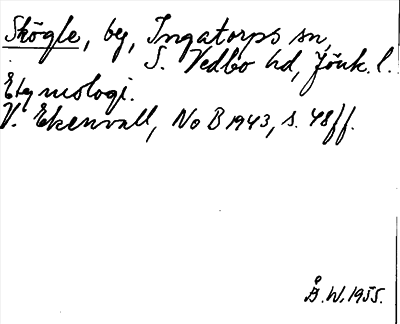 Skögle, by, Ingatorps sn,
S. Vedbo hd, Jönk. l.
Etymologi.
V. Ekenvall, NoB 1943, s. 48ff.
Å. W. 1955.